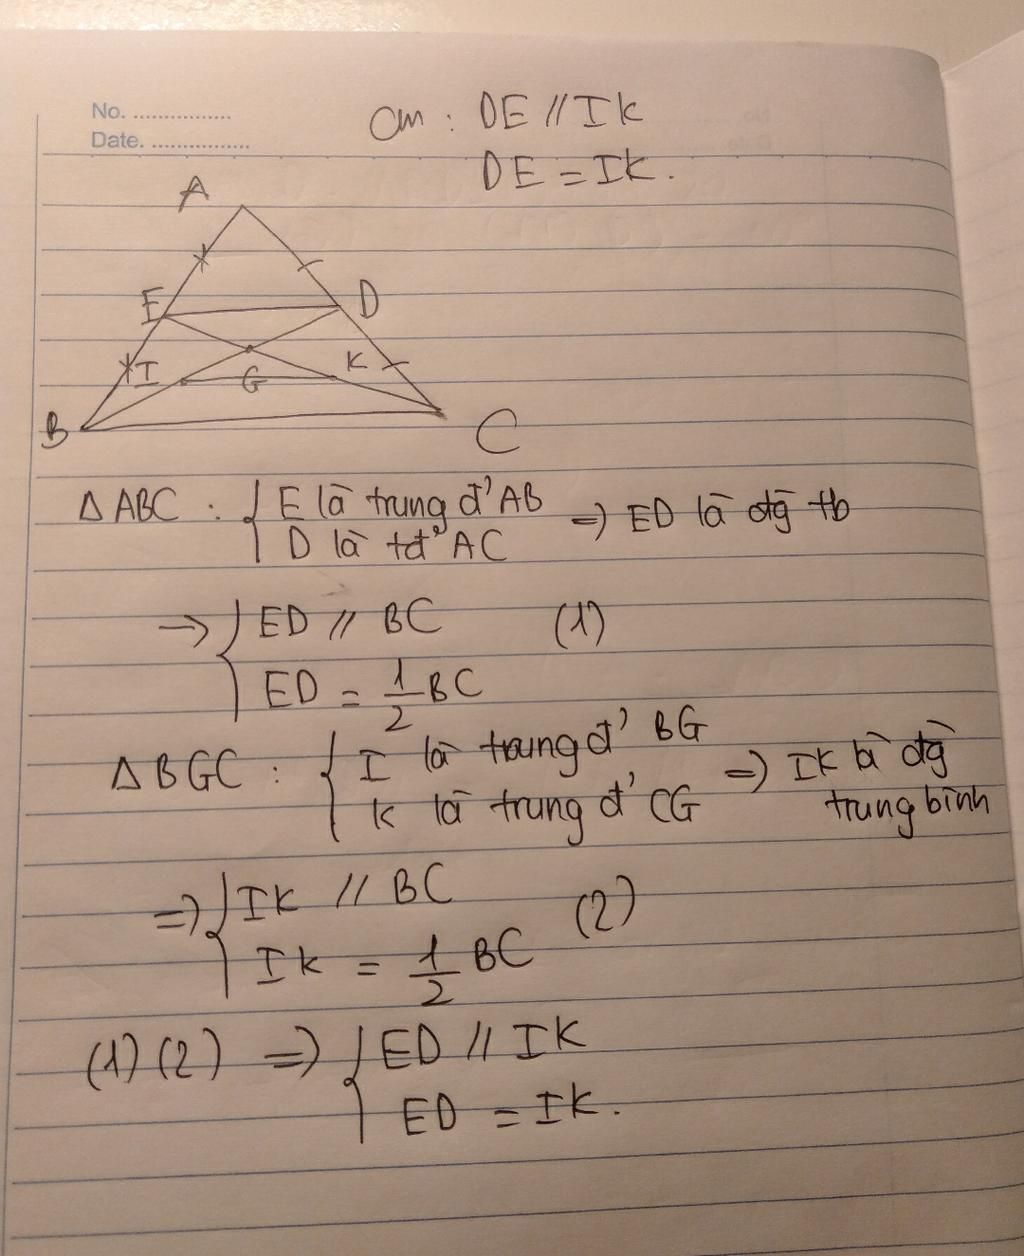 No. ................
Date. ................
cm : DE // IK
DE = IK.
A
E
D
I
G
K
B
C
Δ ABC : { E là trung đ' AB
D là tđ' AC => ED là đg tb
=> { ED // BC (1)
ED = 1/2 BC
Δ BGC : { I là trung đ' BG
K là trung đ' CG => IK là đg
trung bình
=> { IK // BC (2)
IK = 1/2 BC
(1) (2) => { ED // IK
ED = IK.